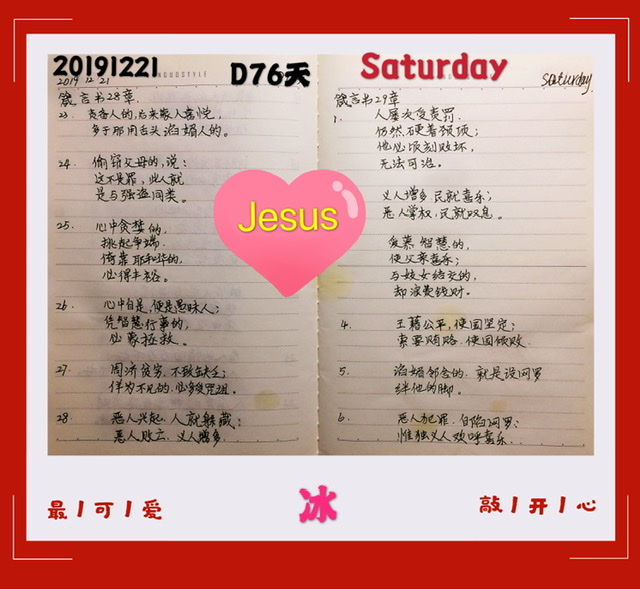 20191221
D76天
Saturday
2019 12 21
saturday
箴言书28章
23. 责备人的,后来蒙人喜悦,
多于那用舌头谄媚人的。
24. 偷窃父母的,说:
这不是罪,此人就
是与强盗同类。
25. 心中贪婪的,
挑起争端;
倚靠耶和华的,
必得丰裕。
26. 心中自是,便是愚昧人;
凭智慧行事的,
必蒙拯救。
27. 周济贫穷,不致缺乏;
佯为不见的,必多受咒诅。
28. 恶人兴起,人就躲藏;
恶人败亡,义人增多.
Jesus
箴言书29章
1. 人屡次受责罚,
仍然硬着颈项;
他必顷刻败坏,
无法可治。
义人增多,民就喜乐;
恶人掌权,民就叹息。
爱慕智慧的,
使父亲喜乐;
与妓女结交的,
却浪费钱财。
4. 王藉公平,使国坚定;
索要贿赂,使国倾败.
5. 谄媚邻舍的,就是设网罗
绊他的脚。
6. 恶人犯罪,自陷网罗;
惟独义人欢呼喜乐.
最/可/爱
冰
敲/开/心